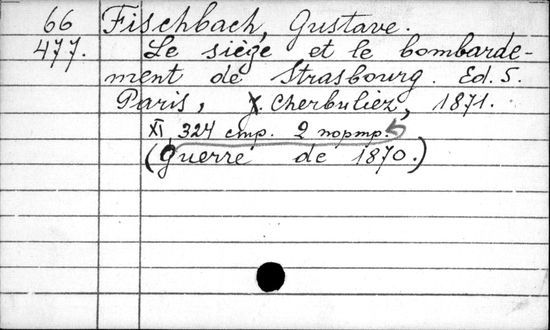 66 Fischbach, Gustave.
477. Le siège et le bombarde-
ment de Strasbourg. Ed. 5.
Paris, Cherbuliez, 1871.
XI, 324 стр. 2 портр.
(Guerre de 1870.)